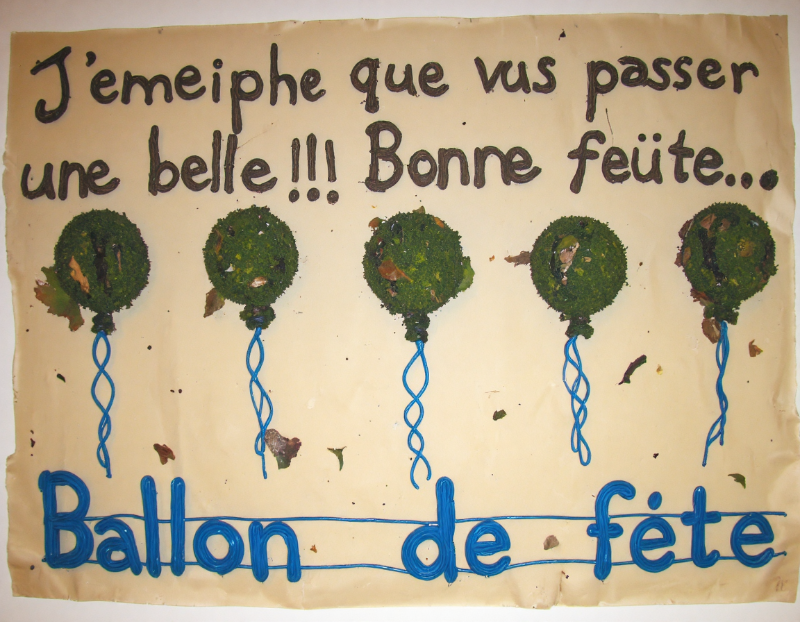 J'emeiphe que vus passer
une belle!!! Bonne feüte...
Ballon de fėte